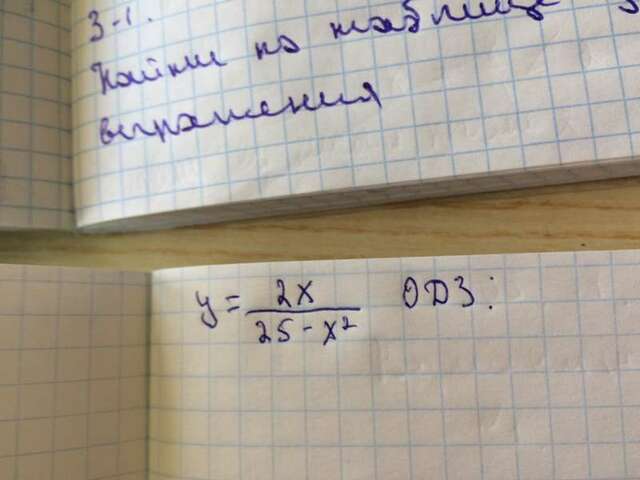 3-1.
Найти по таблице
выражения
y = 2x / 25 - x² ОДЗ: